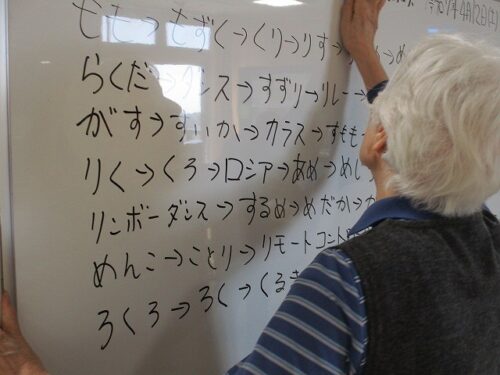 令和7年4月12日
もも→もずく→くり→りす→
らくだ→ダンス→すずり→リレー→
がす→すいか→カラス→すもも
りく→くろ→ロシア→あめ→めし
リンボーダンス→するめ→めだか→か
めんこ→ことり→リモートコント
ろくろ→ろく→くるま